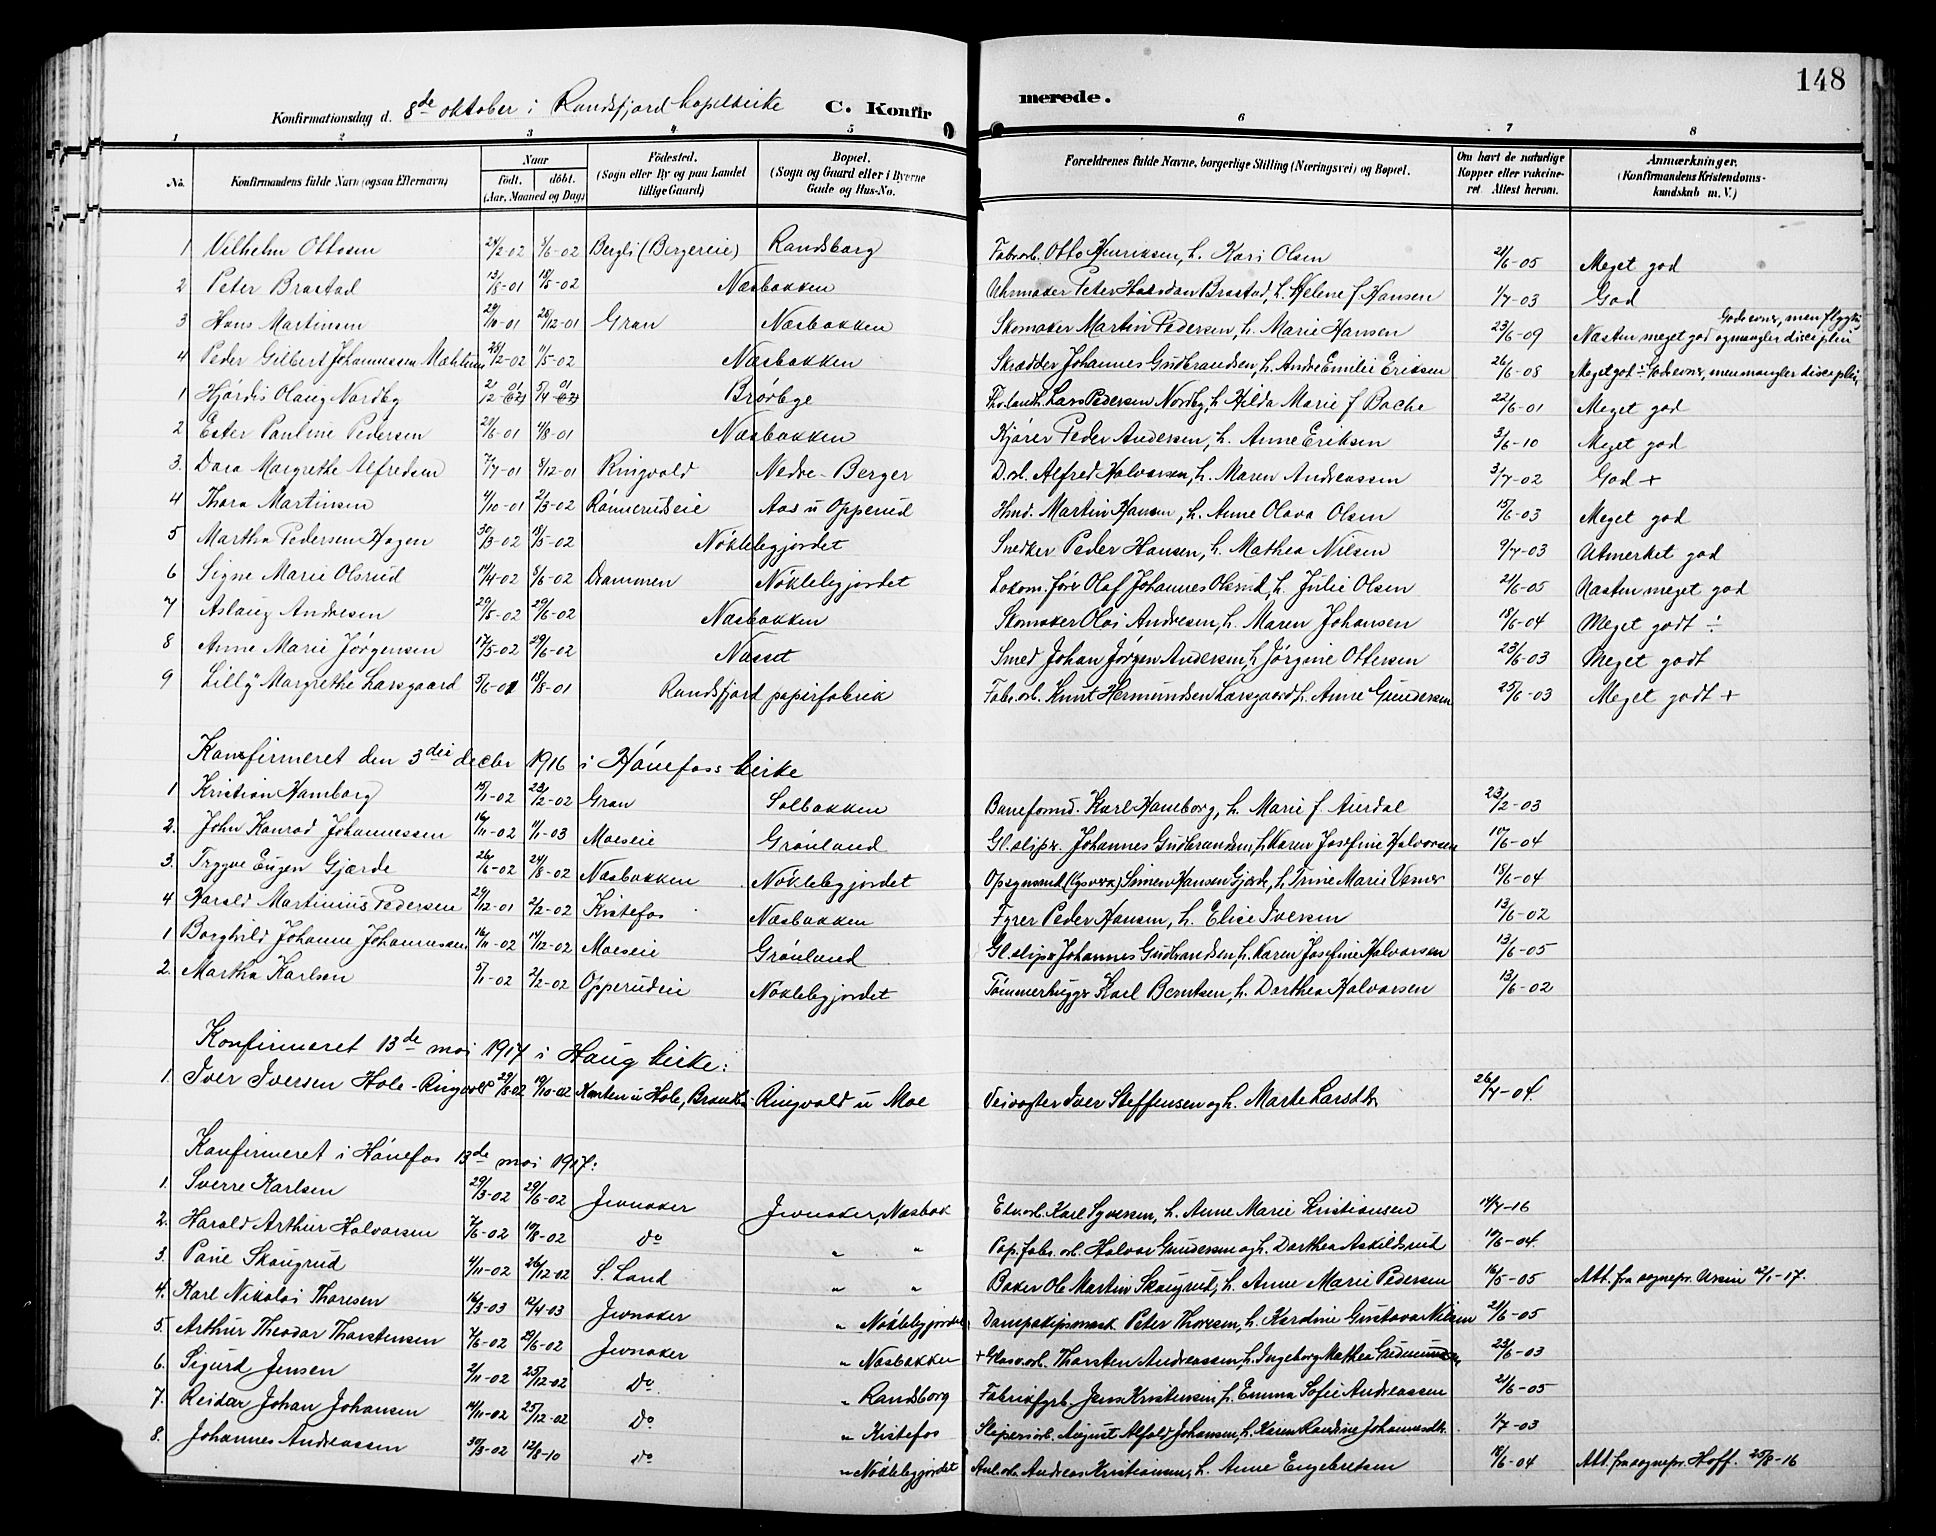 148
Konfirmationsdag d. 8de oktober i Randsfjord kapelkirke C. Konfirmerede.
1 2 3 4 5 6 7 8
No. Konfirmandens fulde Navn (ogsaa Efternavn) Naar født. døbt. (Aar, Maaned og Dag) Födested. (Sogn eller By og paa Landet tillige Gaard) Bopæl. (Sogn og Gaard eller i Byerne Gade og Hus-No. Forældrenes fulde Navne, borgerlige Stilling (Næringsvei) og Bopæl. Om havt de naturlige Kopper eller vakcineret. Attest herom. Anmærkninger. (Konfirmandens Kristendomskundskab m. V.)
1 Vilhelm Ottosen 24/2-02 8/6-02 Bergli (Bergereie) Randsborg Fabr.arb. Otto Henriksen, h. Kari Olsen 21/6-05 Meget god
2 Peter Brastad 13/8-01 18/5-02 Næsbakken Uhrmaker Peter Halvdan Brastad, h. Helene f. Hansen 1/7-03 God
3 Hans Martinsen 29/10-01 26/12-01 Gran Næsbakken Skomaker Martin Pedersen, h. Marie Hansen 23/6-09 Næsten meget god Gode evner, men flygtig og mangler disciplin
4 Peder Gilbert Johannessen 28/12-02 11/5-02 Næsbakken Skrædder Johannes Gudbrandsen, h. Andrea Emilie Eriksen 26/6-08 Meget god ÷ Gode evner, men mangler disciplin
1 Hjördis Olaug Nordby 2/12 01 5/4 01 Brørbye Lars Pedersen Nordby, h. Hilda Marie f. Bache 22/6-01 Meget god
2 Ester Pauline Pedersen 21/6-01 4/8-01 Næsbakken Kjører Peder Andersen, h. Anne Eriksen 3/6-10 Meget god
3. Dora Margrethe Alfredsen 7/7-01 8/12-01 Ringvold Nedre-Berger D.arb. Alfred Halvorsen, h. Maren Andreassen 3/7-02 God +
4 Thora Martinsen 4/10-01 2/3-02 Rønnerudseie Aas u Opperud Hmd. Martin Hansen, h. Anne Olava Olsen 15/6-03 Meget god
5 Martha Pedersen Hagen 30/3-02 18/5-02 Nöklebygjordet Snedker Peder Hansen, h. Mathea Nilsen 9/7-03 Utmerket god
6 Signe Marie Olsrud 14/4-02 8/6-02 Drammen Nöklebygjordet Lokom.förer Olaf Johannes Olsrud, h. Julie Olsen 21/6-05 Næsten meget god
7 Aslaug Andresen 29/5-02 29/6-02 Næsbakken Skomaker Olai Andresen, h. Maren Johansen 18/6-04 Meget godt ÷
8 Anne Marie Jørgensen 17/5-02 29/6-02 Næsset Smed Johan Jørgen Andersen, h. Jørgine Ottersen 23/6-03 Meget godt
9 Lilly Margrethe Larsgaard 5/6-01 18/8-01 Randsfjord papirfabrik Fabr.arb. Knut Hermundsen Larsgaard, h. Anne Gundersen 25/6-03 Meget godt +
Konfirmeret den 3die decbr 1916 i Hönefoss kirke
1 Kristian Hamborg 15/1-02 23/2-02 Gran Solbakken Baneformd. Karl Haneborg, h. Marie f. Aurdal 23/2-03
2. John Konrad Johannessen 16/11-02 11/1-03 Moeseie Grönland Gl.sliper Johannes Gudbrandsen, h. Karen Josefine Halvorsen 10/6-04
3. Trygve Eugen Gjærde 26/6-02 24/8-02 Næsbakken Nöklebygjordet Opsynsmd Simen Hansen Gjærde, h. Trine Marie 15/6-04
4 Harald Martinius Pedersen 29/12-01 2/2-02 Kistefos Næsbakken Fyrer Peder Hansen, h. Elise Iversen 13/6-02
1 Borghild Johanne Johannessen 16/11-02 14/12-02 Moeseie Grönland Gl.sliper Johannes Gudbrandsen, h. Karen Josefine Halvorsen 13/6-05
2. Martha Karlsen 5/1-02 2/2-02 Opperudeie Nöklebygjordet Tömmerhugger Karl Berntsen, h. Dorthea Halvorsen 13/6-02
Konfirmeret 13de mai 1917 i Haug kirke:
1. Iver Iversen Hole-Ringvold 29/8-02 19/10-02 Kanten u Hole, Ringvold u Moe Veivogter Iver Steffensen og h. Marte Larsdtr. 26/7-04.
Konfirmeret i Hönefos 13de mai 1917:
1. Sverre Karlsen 29/3-02 29/6-02 Jevnaker Jevnaker, Næsbak Elv.arb. Karl Syversen, h. Anne Marie Kristiansen 14/7-16
2. Harald Arthur Halvorsen 7/6-02 10/8-02 Do " " Pap.fabr.arb. Halvor Gundersen og h. Dorthea Askildsrud 10/6-04.
3. Paul Skougrud 4/11-02 26/12-02 S. Land " " Baker Ole Martin Skougrud, h. Anne Marie Pedersen 16/5-05 Att. fra sognepr. Ursin 12/1-17.
4. Karl Nikolai Thoresen 16/3-03 12/4-03 Jevnaker " Nöklebygjordet Dampskipsmask. Peter Thoresen, h. Karoline Gustava Nilsen 21/6-05
5. Arthur Theodor Thorstensen 7/6-02 29/6-02 Jevnaker " Næsbakken + Glasv.arb. Thorsten Andreassen, h. Ingeborg Mathea Gudmundsen 23/6-03
6. Sigurd Jensen 2/11-02 25/12-02 Do. " Randsborg Fabrikfyrb. Jens Kristensen, h. Emma Sofie Andreassen 21/6-05
7. Reidar Johan Johansen 14/11-02 25/12-02 Do " Kistefos Sliperiarb. August Alfold Johansen, h. Karen Randine Johannesdtr. 1/7-03
8. Johannes Andreassen 30/3-02 12/8-10 Do " Nöklebygjordet Anl.arb. Andreas Kristiansen, h. Anne Engebretsen 18/6-04 Att. fra sognepr. Hoff. 25/8-16